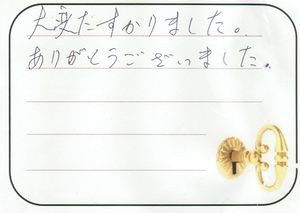 大変たすかりました。
ありがとうございました。